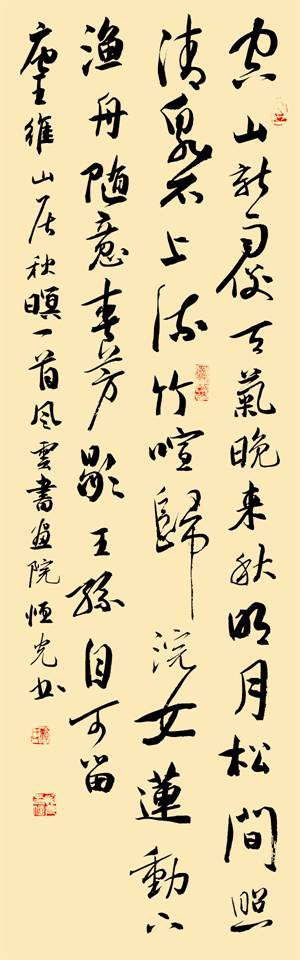 空山新雨後天氣晚来秋明月松間照
清泉石上流竹喧歸浣女蓮動下
渔舟随意春芳歇王孫自可留
唐王維山居秋暝一首风雲書畫院恒光书